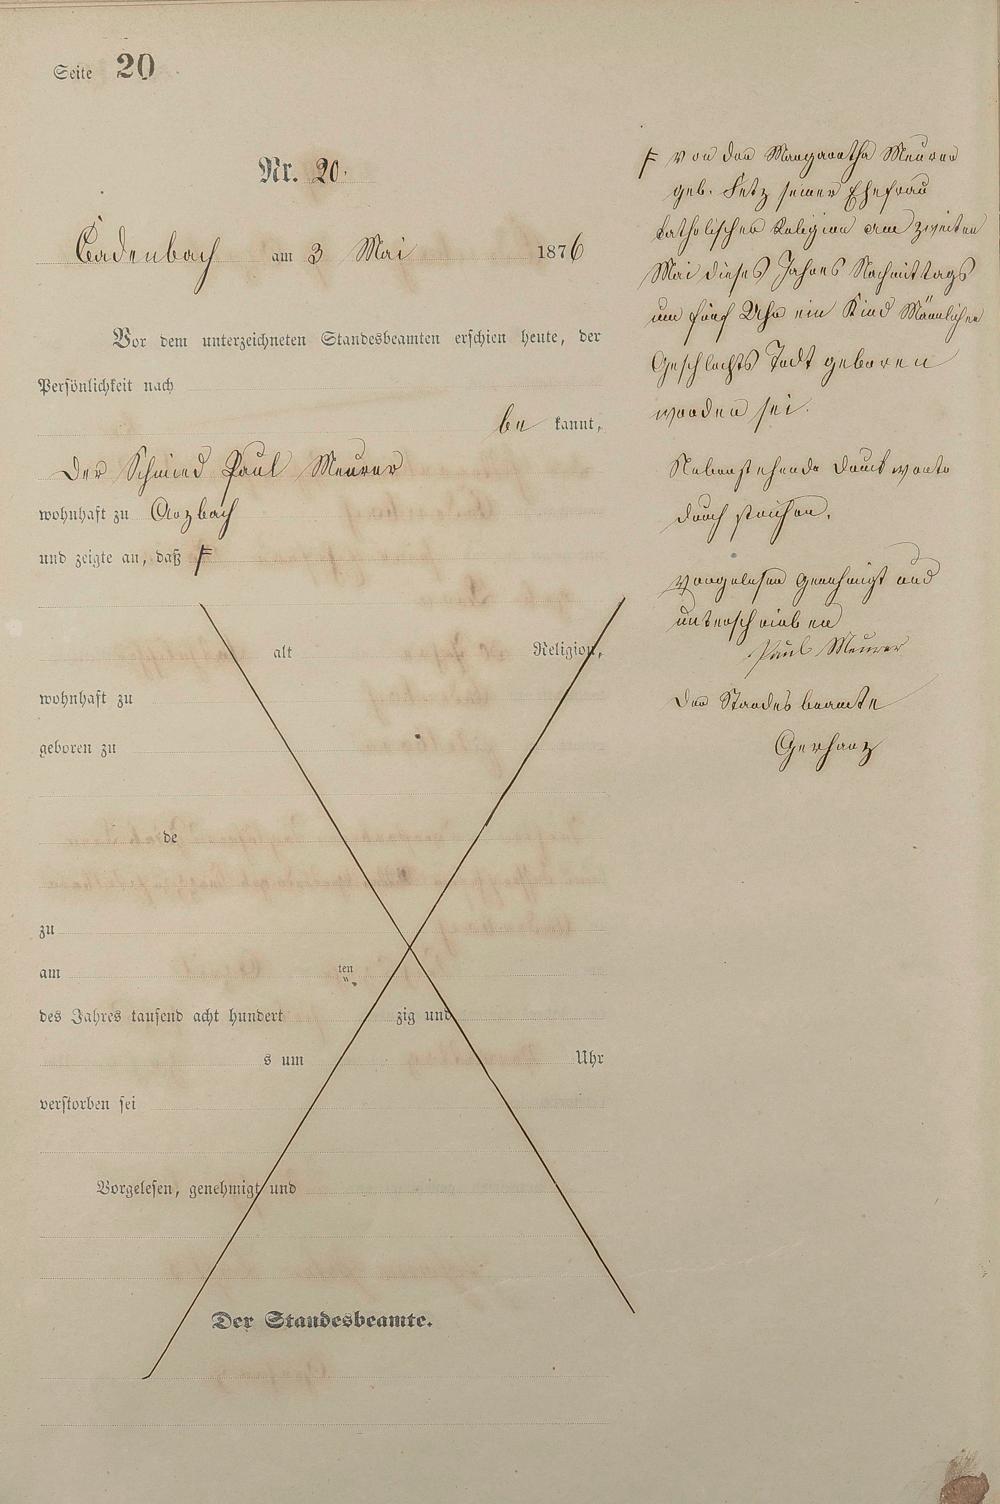 Seite 20
Nr. 20.
Cadenbach am 3 Mai 1876
Vor dem unterzeichneten Standesbeamten erschien heute, der
Persönlichkeit nach
be kannt,
Der Schmied Paul Meurer
wohnhaft zu Arzbach
und zeigte an, daß F
alt Religion,
wohnhaft zu
geboren zu
de
zu
am ten
des Jahres tausend acht hundert zig und
s um Uhr
verstorben sei
Vorgelesen, genehmigt und
Der Standesbeamte.
F von der Margaretha Meurer
geb. Fetz seiner Ehefrau
katholischer Religion am zweiten
Mai dieses Jahres Nachmittags
um fünf Uhr ein Kind Männlichen
Geschlechts Todt geboren
worden sei.
Nebenstehende Druckworte
durch strichen.
Vorgelesen genehmigt und
unterschrieben
Paul Meurer
Der Standesbeamte
Gerharz